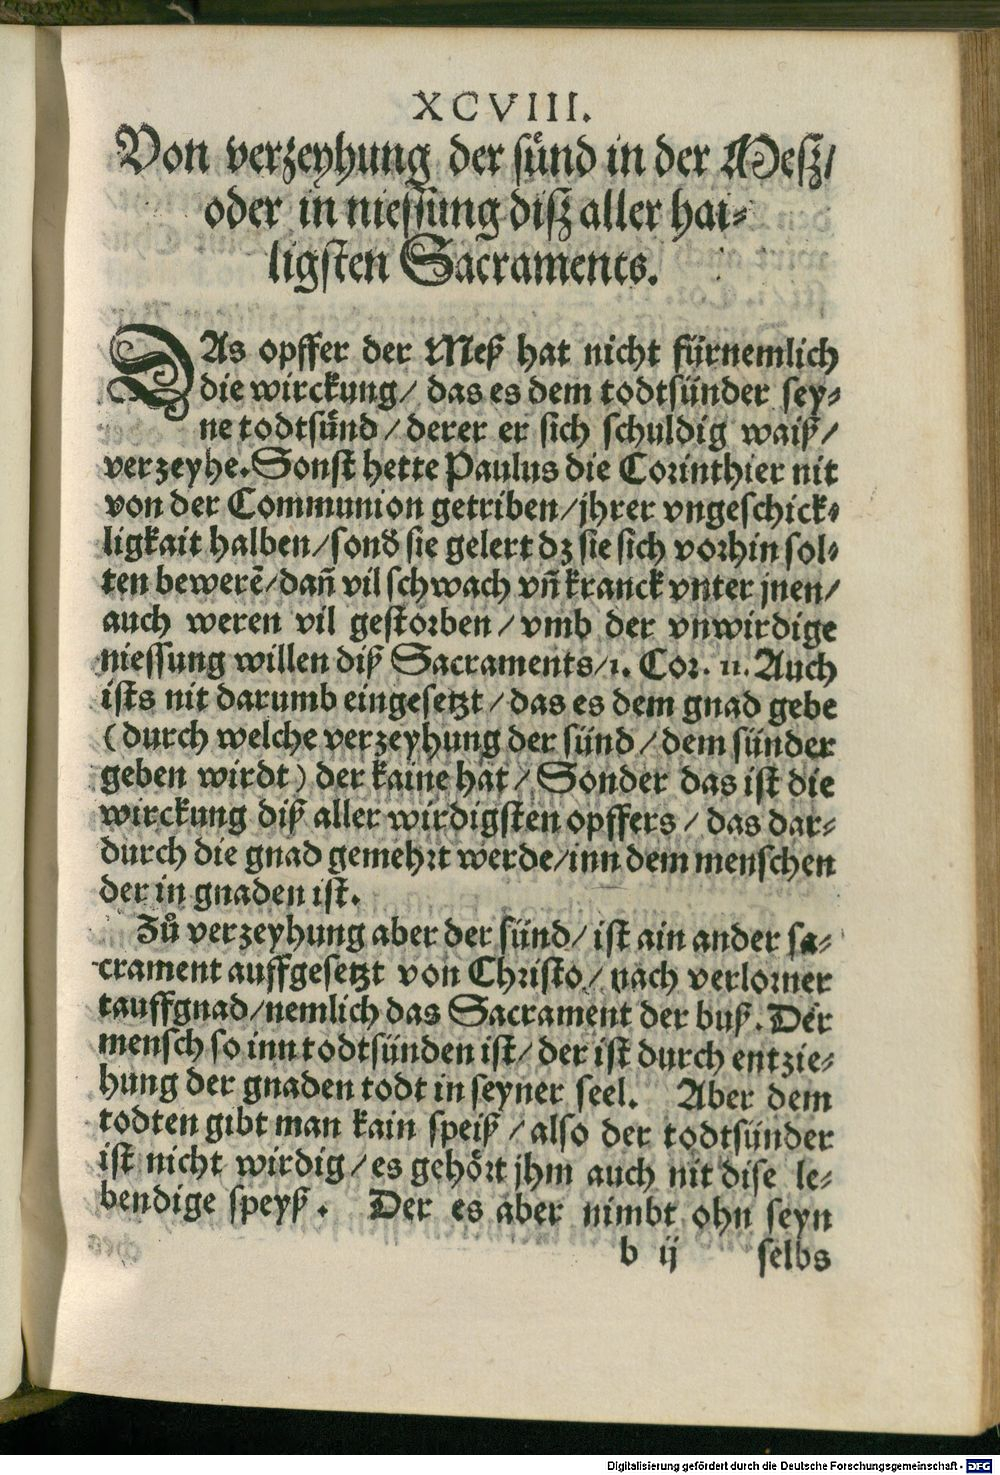 XCVIII.
Von verzeyhung der sünd in der Mesz/
oder in niessung disz aller hai-
ligsten Sacraments.
DAs opffer der Meß hat nicht fürnemlich
die wirckung/ das es dem todtsünder sey-
ne todtsünd/ derer er sich schuldig waiß/
verzeyhe. Sonst hette Paulus die Corinthier nit
von der Communion getriben/ jhrer vngeschick-
ligkait halben/ sonď sie gelert dz sie sich vorhin sol-
ten bewerē/ dañ vil schwach vñ kranck vnter jnen/
auch weren vil gestorben/ vmb der vnwirdige
niessung willen diß Sacraments/ 1. Cor. 11. Auch
ists nit darumb eingesetzt/ das es dem gnad gebe
(durch welche verzeyhung der sünd/ dem sünder
geben wirdt) der kaine hat/ Sonder das ist die
wirckung diß aller wirdigsten opffers/ das dar-
durch die gnad gemehrt werde/ inn dem menschen
der in gnaden ist.
Zů verzeyhung aber der sünd/ ist ain ander sa-
crament auffgesetzt von Christo/ nach verlorner
tauffgnad/ nemlich das Sacrament der buß. Der
mensch so inn todtsünden ist/ der ist durch entzie-
hung der gnaden todt in seyner seel. Aber dem
todten gibt man kain speiß/ also der todtsünder
ist nicht wirdig/ es gehört jhm auch nit dise le-
bendige speyß. Der es aber nimbt ohn seyn
b ij selbs
Digitalisierung gefördert durch die Deutsche Forschungsgemeinschaft - DFG